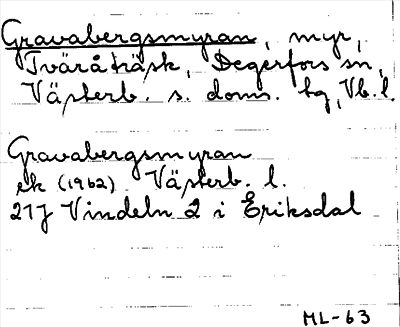 Gravabergsmyran, myr,
Tväråträsk, Degerfors sn,
Västerb. s. doms. tg, Vb. l.
Gravabergsmyran
ek (1962) Västerb. l.
21J Vindeln 2 i Eriksdal
ML-63